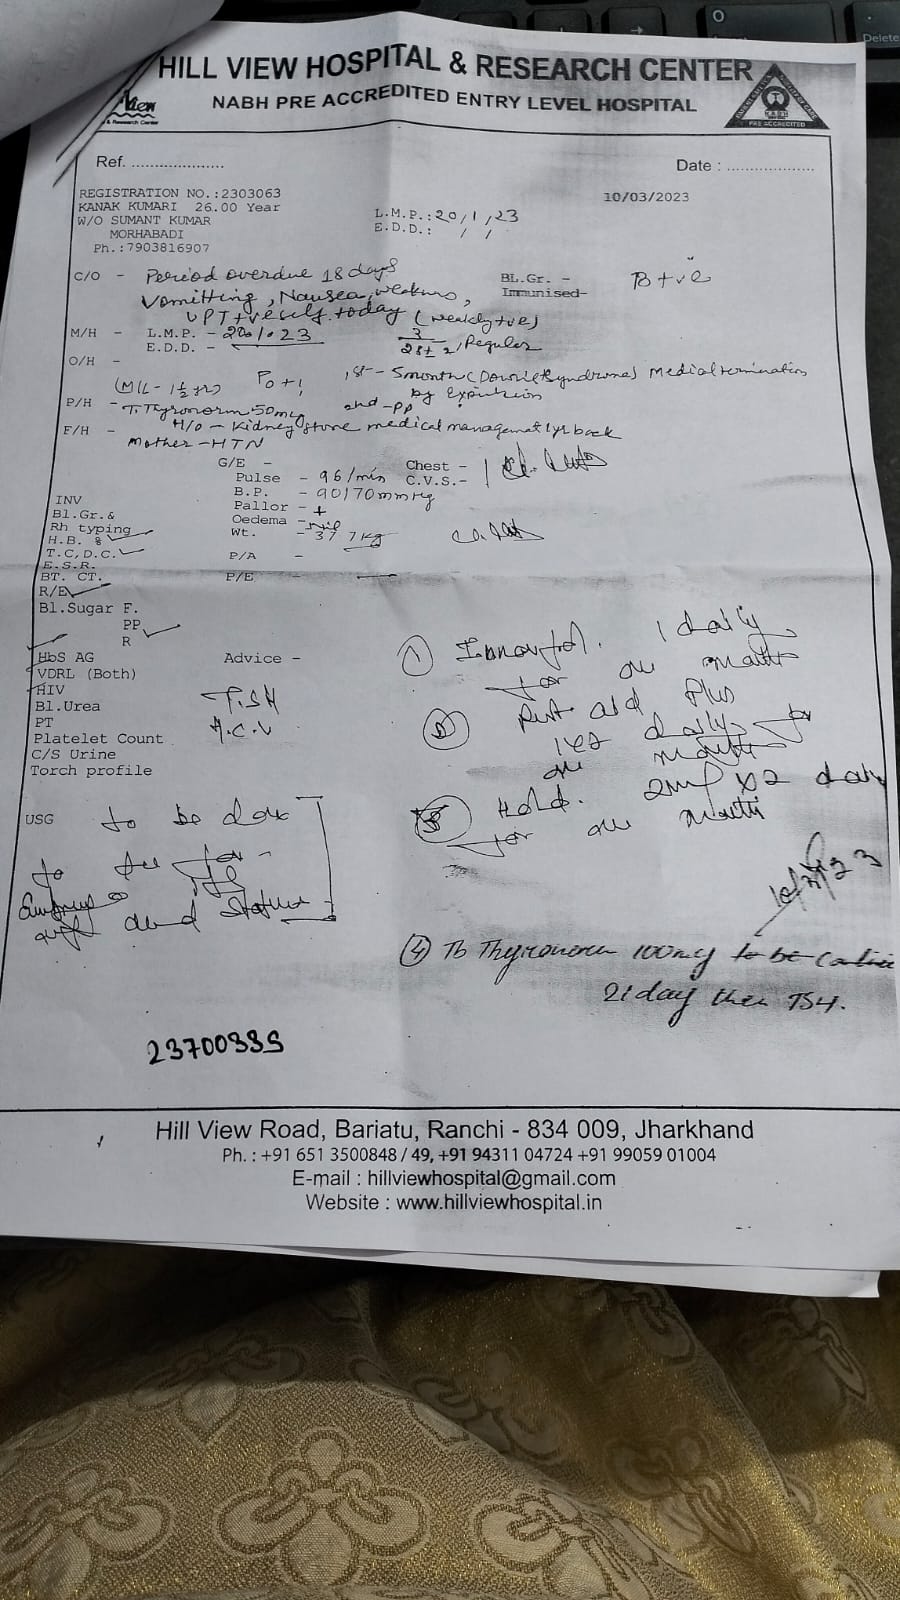 HILL VIEW HOSPITAL & RESEARCH CENTER
NABH PRE ACCREDITED ENTRY LEVEL HOSPITAL
View
& Research Center
PRE ACCREDITED
Ref. .....................
Date : ....................
REGISTRATION NO.:2303063
10/03/2023
KANAK KUMARI 26.00 Year
W/O SUMANT KUMAR
MORHABADI
Ph.:7903816907
L.M.P.:20/1/23
E.D.D.: / /
C/O - Period overdue 18 days
Vomitting, Nausea, weakness,
UPT +ve self today (weakly +ve)
BL.Gr. - B +ve
Immunised-
M/H - L.M.P. - 20/1/23
E.D.D. -
3
28± 2, Regular
O/H -
(M/L - 1½ yr) P0+1 1st - 5 month (Down Syndrome) Medical termination
by Expulsion
2nd - PP
P/H - T. Thyronorm 50mcg
H/o - Kidney stone medical management 1yr back
F/H - Mother - HTN
G/E -
Pulse - 96/min
B.P. - 90/70mmHg
Pallor - +
Oedema - Nil
Wt. - 37.7kg
Chest -
C.V.S.-
P/A -
P/E -
INV
Bl.Gr.&
Rh typing
H.B. %
T.C,D.C.
E.S.R.
BT. CT.
R/E
Bl.Sugar F.
PP
R
HbS AG
VDRL (Both)
HIV
Bl.Urea
PT
Platelet Count
C/S Urine
Torch profile
Advice -
TSH
H.C.V
USG to be done
to see for
and Status
① 1 daily
for one month
② Plus
daily for
one month
③ Hold. x2 daily
for one month
10/3/23
④ Tb Thyronorm 100mcg to be
21 day then TSH.
23700339
Hill View Road, Bariatu, Ranchi - 834 009, Jharkhand
Ph. : +91 651 3500848 / 49, +91 94311 04724 +91 99059 01004
E-mail : hillviewhospital@gmail.com
Website : www.hillviewhospital.in
O
Delete